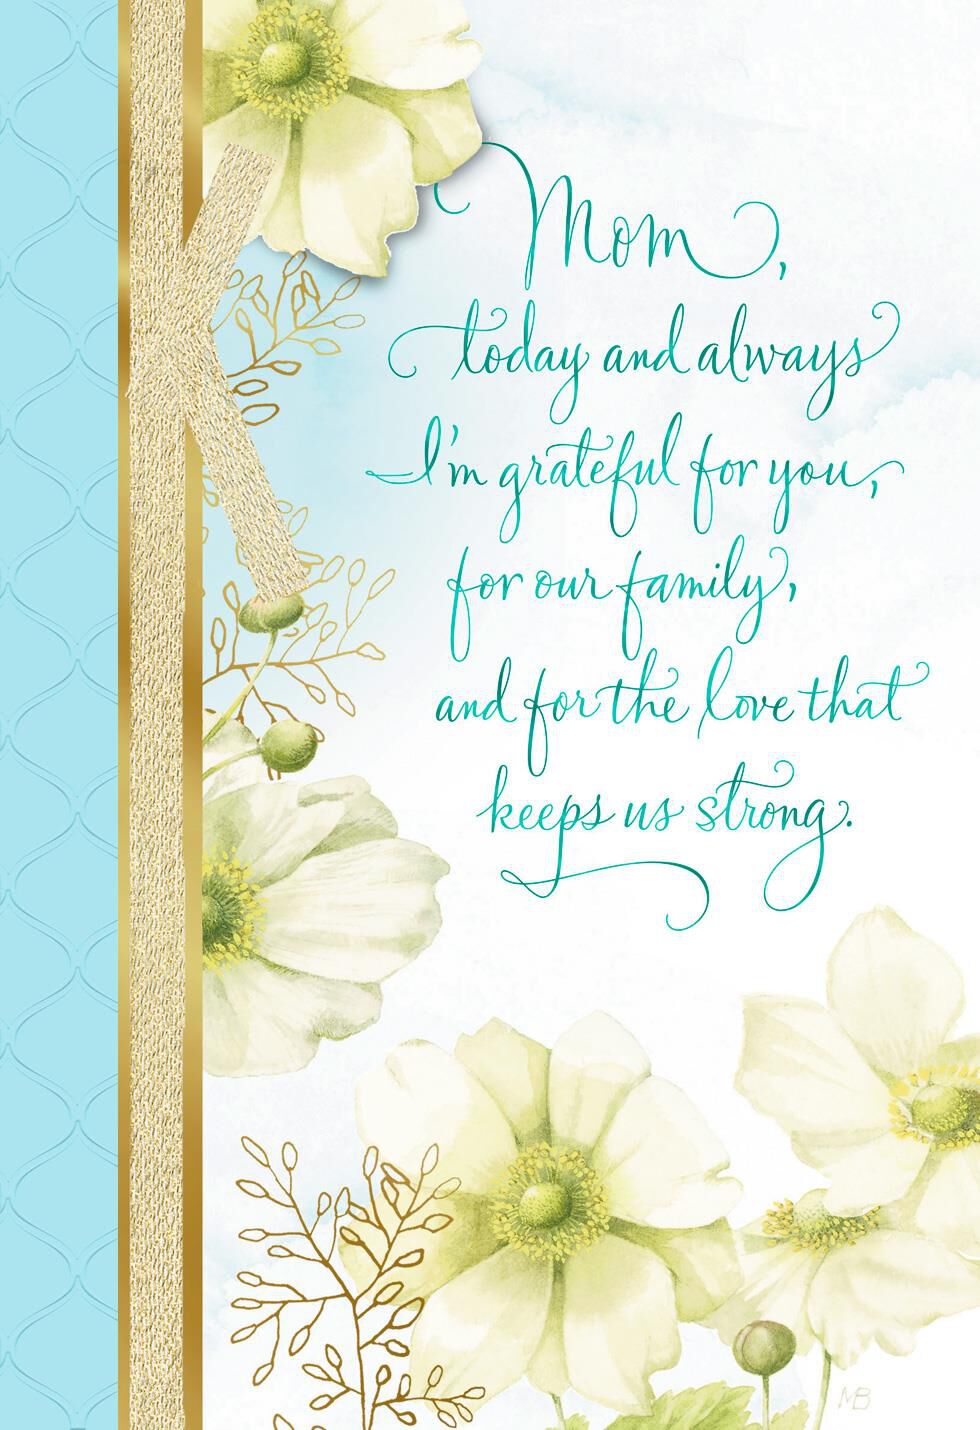 Mom,
today and always
I'm grateful for you,
for our family,
and for the love that
keeps us strong.
MB